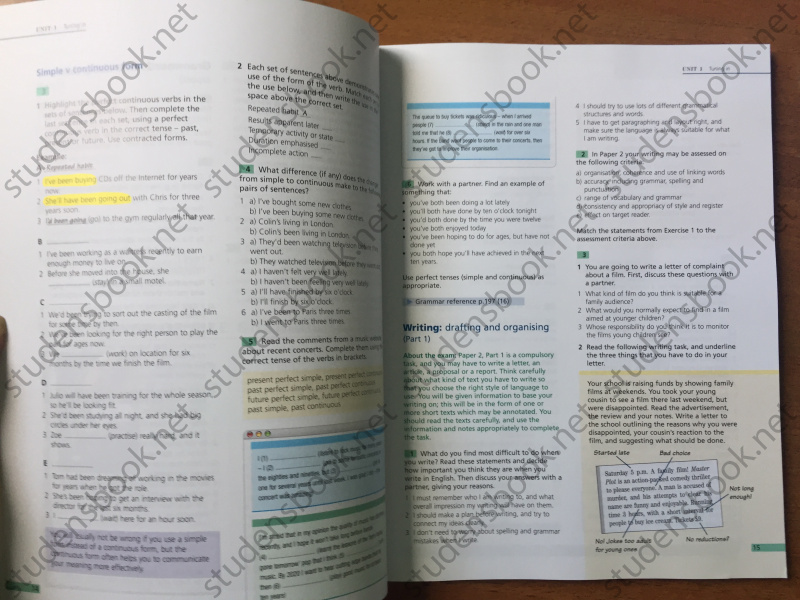 UNIT 1
Simple v continuous form
3
1 Highlight the continuous verbs in the
sets of below. Then complete the
each set, using a perfect
verb in the correct tense – past,
future. Use contracted forms.
Repeated habit
1 I've been buying CDs off the Internet for years
now.
2 She'll have been going out with Chris for three
years soon.
3 I'd been going (go) to the gym regularly all that year.
B
1 I've been working as a waitress recently to earn
enough money to live on.
2 Before she moved into the house, she
(stay) in a small motel.
C
1 We'd been trying to sort out the casting of the film
for some time by then.
2 We've been looking for the right person to play the
part for ages now.
3 We (work) on location for six
months by the time we finish the film.
D
1 Julio will have been training for the whole season,
so he'll be looking fit.
2 She'd been studying all night, and she had big
circles under her eyes.
3 Zoe (practise) really hard, and it
shows.
E
1 Tom had been dreaming of working in the movies
for years when he
2 She's been hoping to get an interview with the
director for the past six months.
3 I (wait) here for an hour soon.
You will usually not be wrong if you use a simple
instead of a continuous form, but the
continuous form often helps you to communicate
your meaning more effectively.
14
2 Each set of sentences above demonstrates
use of the form of the verb. Match each
the use below, and then write the use in the
space above the correct set.
Repeated habit A
Results apparent later
Temporary activity or state
Duration emphasised
Incomplete action
4 What difference (if any) does the change
from simple to continuous make to the following
pairs of sentences?
1 a) I've bought some new clothes.
b) I've been buying some new clothes.
2 a) Colin's living in London.
b) Colin's been living in London.
3 a) They'd been watching television before they
went out.
b) They watched television before they went out.
4 a) I haven't felt very well lately.
b) I haven't been feeling very well lately.
5 a) I'll have finished by six o'clock.
b) I'll finish by six o'clock.
6 a) I've been to Paris three times.
b) I went to Paris three times.
5 Read the comments from a music website
about recent concerts. Complete them using the
correct tense of the verbs in brackets.
present perfect simple, present perfect continuous
past perfect simple, past perfect continuous
future perfect simple, future perfect continuous
past simple, past continuous
UNIT 1
The queue to buy tickets was ridiculous – when I arrived
people (7) (stand) in the rain and one man
told me that he (8) (wait) for over six
hours. If the band want people to come to their concerts, then
they've got to improve their organisation.
6 Work with a partner. Find an example of
something that:
• you've both been doing a lot lately
• you'll both have done by ten o'clock tonight
• you'd both done by the time you were twelve
• you've both enjoyed today
• you've been hoping to do for ages, but have not
done yet
• you both hope you'll have achieved in the next
ten years.
Use perfect tenses (simple and continuous) as
appropriate.
Grammar reference p.197 (16)
Writing: drafting and organising
(Part 1)
About the exam: Paper 2, Part 1 is a compulsory
task, and you may have to write a letter, an
article, a proposal or a report. Think carefully
about what kind of text you have to write so
that you choose the right style of language to
use. You will be given information to base your
writing on; this will be in the form of one or
more short texts which may be annotated. You
should read the texts carefully, and use the
information and notes appropriately to complete
the task.
1 What do you find most difficult to do when
you write? Read these statements and decide
how important you think they are when you
write in English. Then discuss your answers with a
partner, giving your reasons.
1 I must remember who I am writing to, and what
overall impression my writing will have on them.
2 I should make a plan before writing, and try to
connect my ideas
3 I don't need to worry about spelling and grammar
mistakes when I write.
4 I should try to use lots of different grammatical
structures and words.
5 I have to get paragraphing and layout right, and
make sure the language is always suitable for what
I am writing.
2 In Paper 2 your writing may be assessed on
the following criteria:
a) organisation, coherence and use of linking words
b) accuracy including grammar, spelling and
punctuation
c) range of vocabulary and grammar
d) consistency and appropriacy of style and register
e) effect on target reader.
Match the statements from Exercise 1 to the
assessment criteria above.
3
1 You are going to write a letter of complaint
about a film. First, discuss these questions with
a partner.
1 What kind of film do you think is suitable for a
family audience?
2 What would you normally expect to find in a film
aimed at younger children?
3 Whose responsibility do you think it is to monitor
the films young children see?
2 Read the following writing task, and underline
the three things that you have to do in your
letter.
Your school is raising funds by showing family
films at weekends. You took your young
cousin to see a film there last weekend, but
were disappointed. Read the advertisement,
the review and your notes. Write a letter to
the school outlining the reasons why you were
disappointed, your cousin's reaction to the
film, and suggesting what should be done.
Started late
Bad choice
Saturday 5 p.m. A family film! Master
Plot is an action-packed comedy thriller
to please everyone. A man is accused of
murder, and his attempts to clear his
name are funny and enjoyable. Running
time 3 hours, with a short interval for
people to buy ice cream. Tickets
Not long
enough!
No! Jokes too adult
for young ones
No reductions?
15
studensbook.net